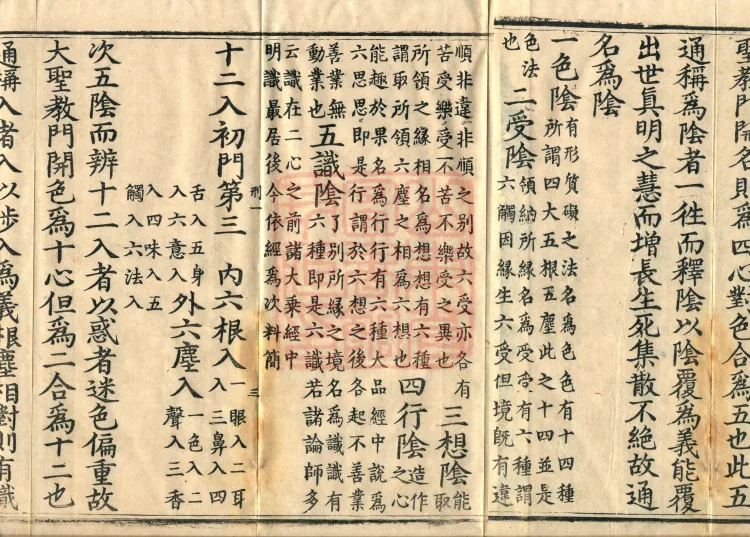 聖教門開名則爲四心對色合爲五也此五
通稱爲陰者一徃而釋陰以陰覆爲義能覆
出世眞明之慧而增長生死集散不絶故通
名爲陰
一色陰有形質礙之法名爲色色有十四種
所謂四大五根五塵此之十四並是
色法
也
二受陰領納所緣名爲受受有六種謂
六觸因緣生六受但境旣有違
順非違非順之別故六受亦各有
苦受樂受不苦不樂受之異也
三想陰能
取
所領之緣相名爲想想有六種
謂取所領六塵之相爲六想也
四行陰造作
之心
能趣於果名爲行行有六種大品經中說爲
六思思即是行謂於六想之後各起不善業
善業無
動業也
五識陰了別所緣之境名爲識識有
六種即是六識若諸論師多
云識在二心之前諸大乘經中
明識最居後今依經爲次料簡
刑一 三
十二入初門第三 內六根入一眼入二耳
入三鼻入四
舌入五身
入六意入
外六塵入一色入二
聲入三香
入四味入五
觸入六法入
次五陰而辨十二入者以惑者迷色偏重故
大聖教門開色爲十心但爲二合爲十二也
通稱入者入以涉入爲義根塵相對則有識